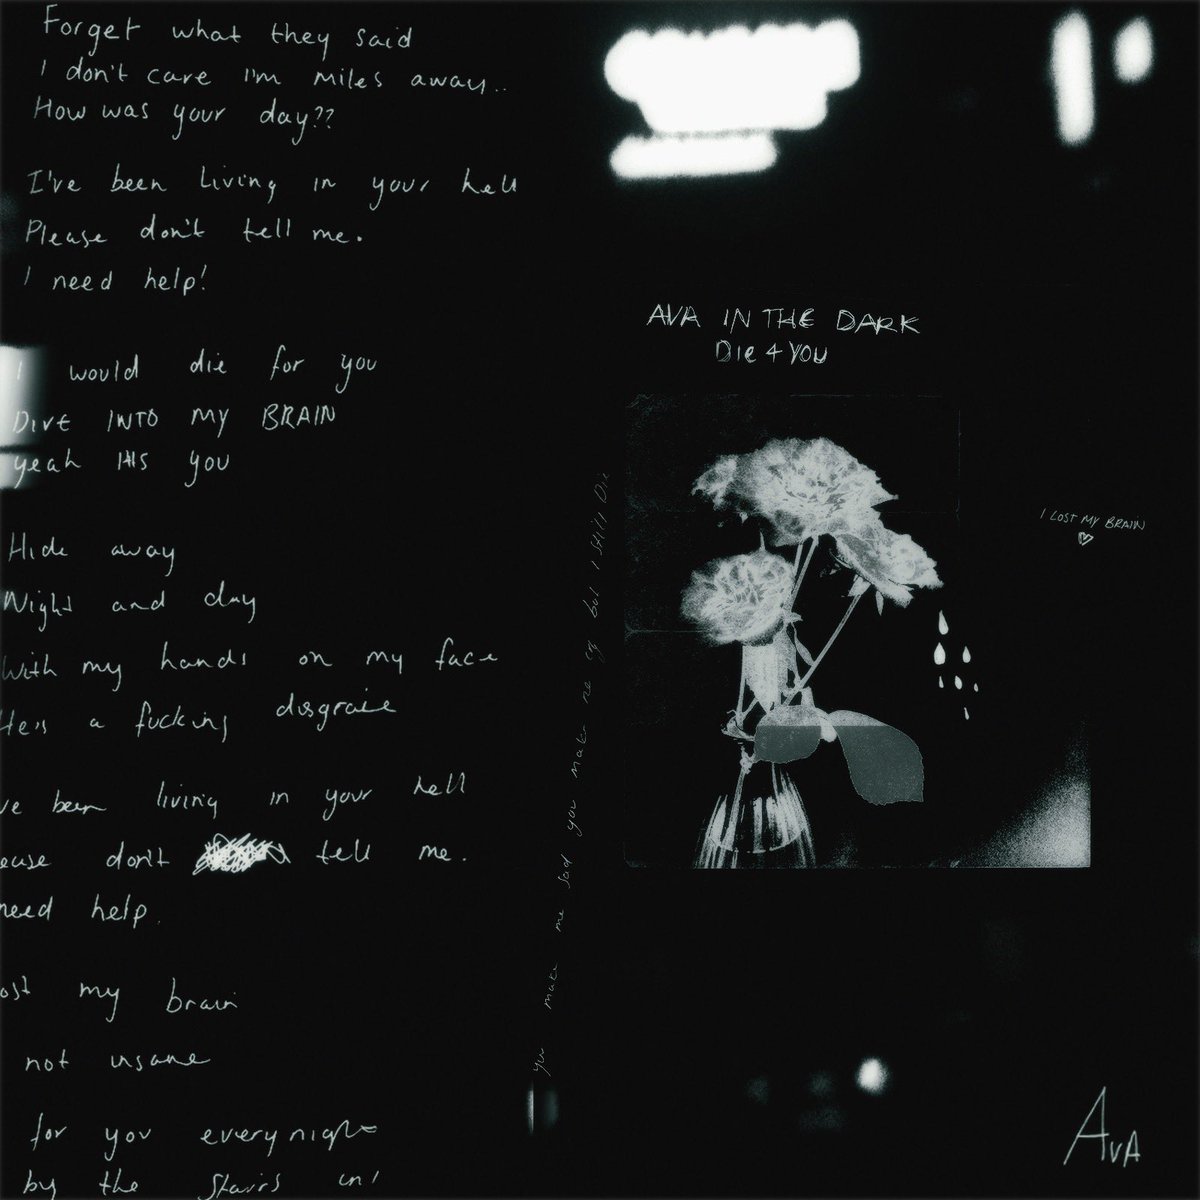 Forget what they said
I don't care I'm miles away..
How was your day??
I've been living in your hell
Please don't tell me.
I need help!
I would die for you
Dive INTO MY BRAIN
yeah its you
Hide away
Night and day
With my hands on my face
He's a fucking disgrace
've been living in your hell
ease don't tell me.
need help.
ost my brain
not insane
for you every night
by the stairs
you make me sad you make me but I still Die
AVA IN THE DARK
Die 4 YOU
I LOST MY BRAIN
AVA